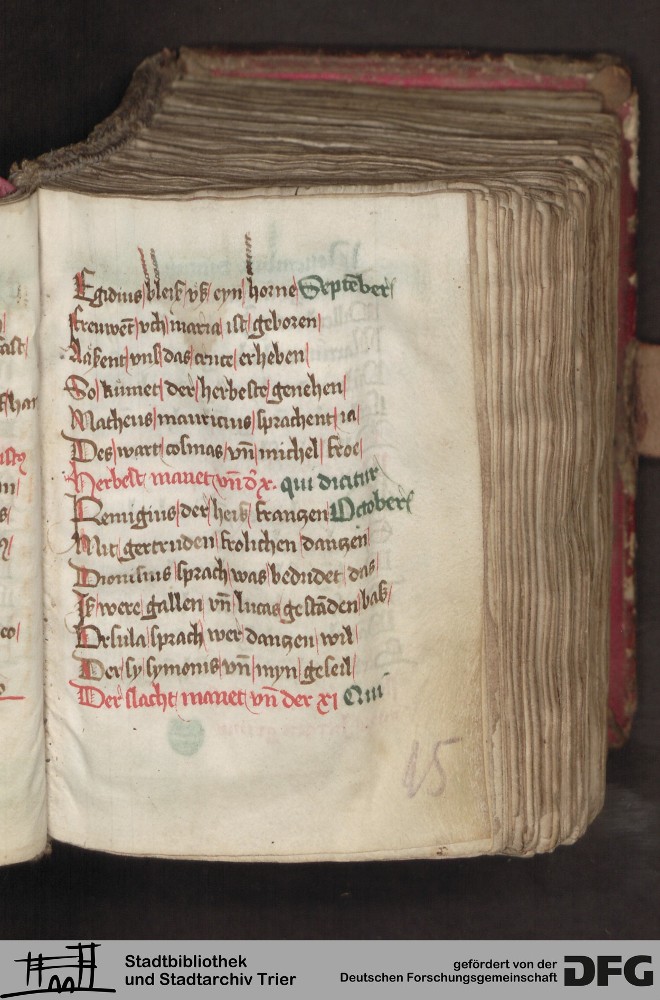 Egidius bleiß vß eyn horne Septēber
freuwēt vch maria ist geboren
das cruce erheben
So kūmet der herbeste genehen
Matheus mauricius sprachent ia
Des wart cosmas vn̄ michel froe
Herbest manet vn̄ d' x. qui dicitur
Remigius der heiß frantzen October
Mit gertruden frolichen dantzen
Dionisius sprach was bedudet das
Ik were gallen vn̄ lucas gestāden baß
Vrsula sprach wer dantzen wil
Der sy symonis vn̄ myn gesell
Der slacht manet vn̄ der xi Qui
15
Stadtbibliothek
und Stadtarchiv Trier
gefördert von der
Deutschen Forschungsgemeinschaft
DFG